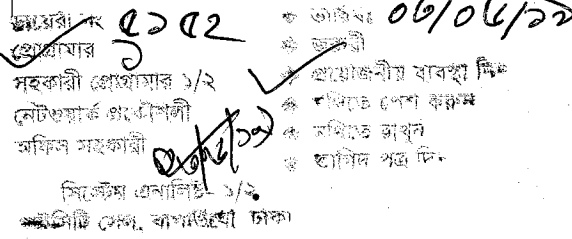 ডায়েরী নং ৫১৫২
প্রোগ্রামার ১
সহকারী প্রোগ্রামার ১/২
নেটওয়ার্ক প্রকৌশলী
অফিস সহকারী
সিস্টেম এনালিষ্ট- ১/২
সেল, ঢাকা
তারিখঃ
জরুরী
প্রয়োজনীয় ব্যবস্থা নিন
নথিতে পেশ করুন
নথিতে রাখুন
তাগিদ পত্র দিন